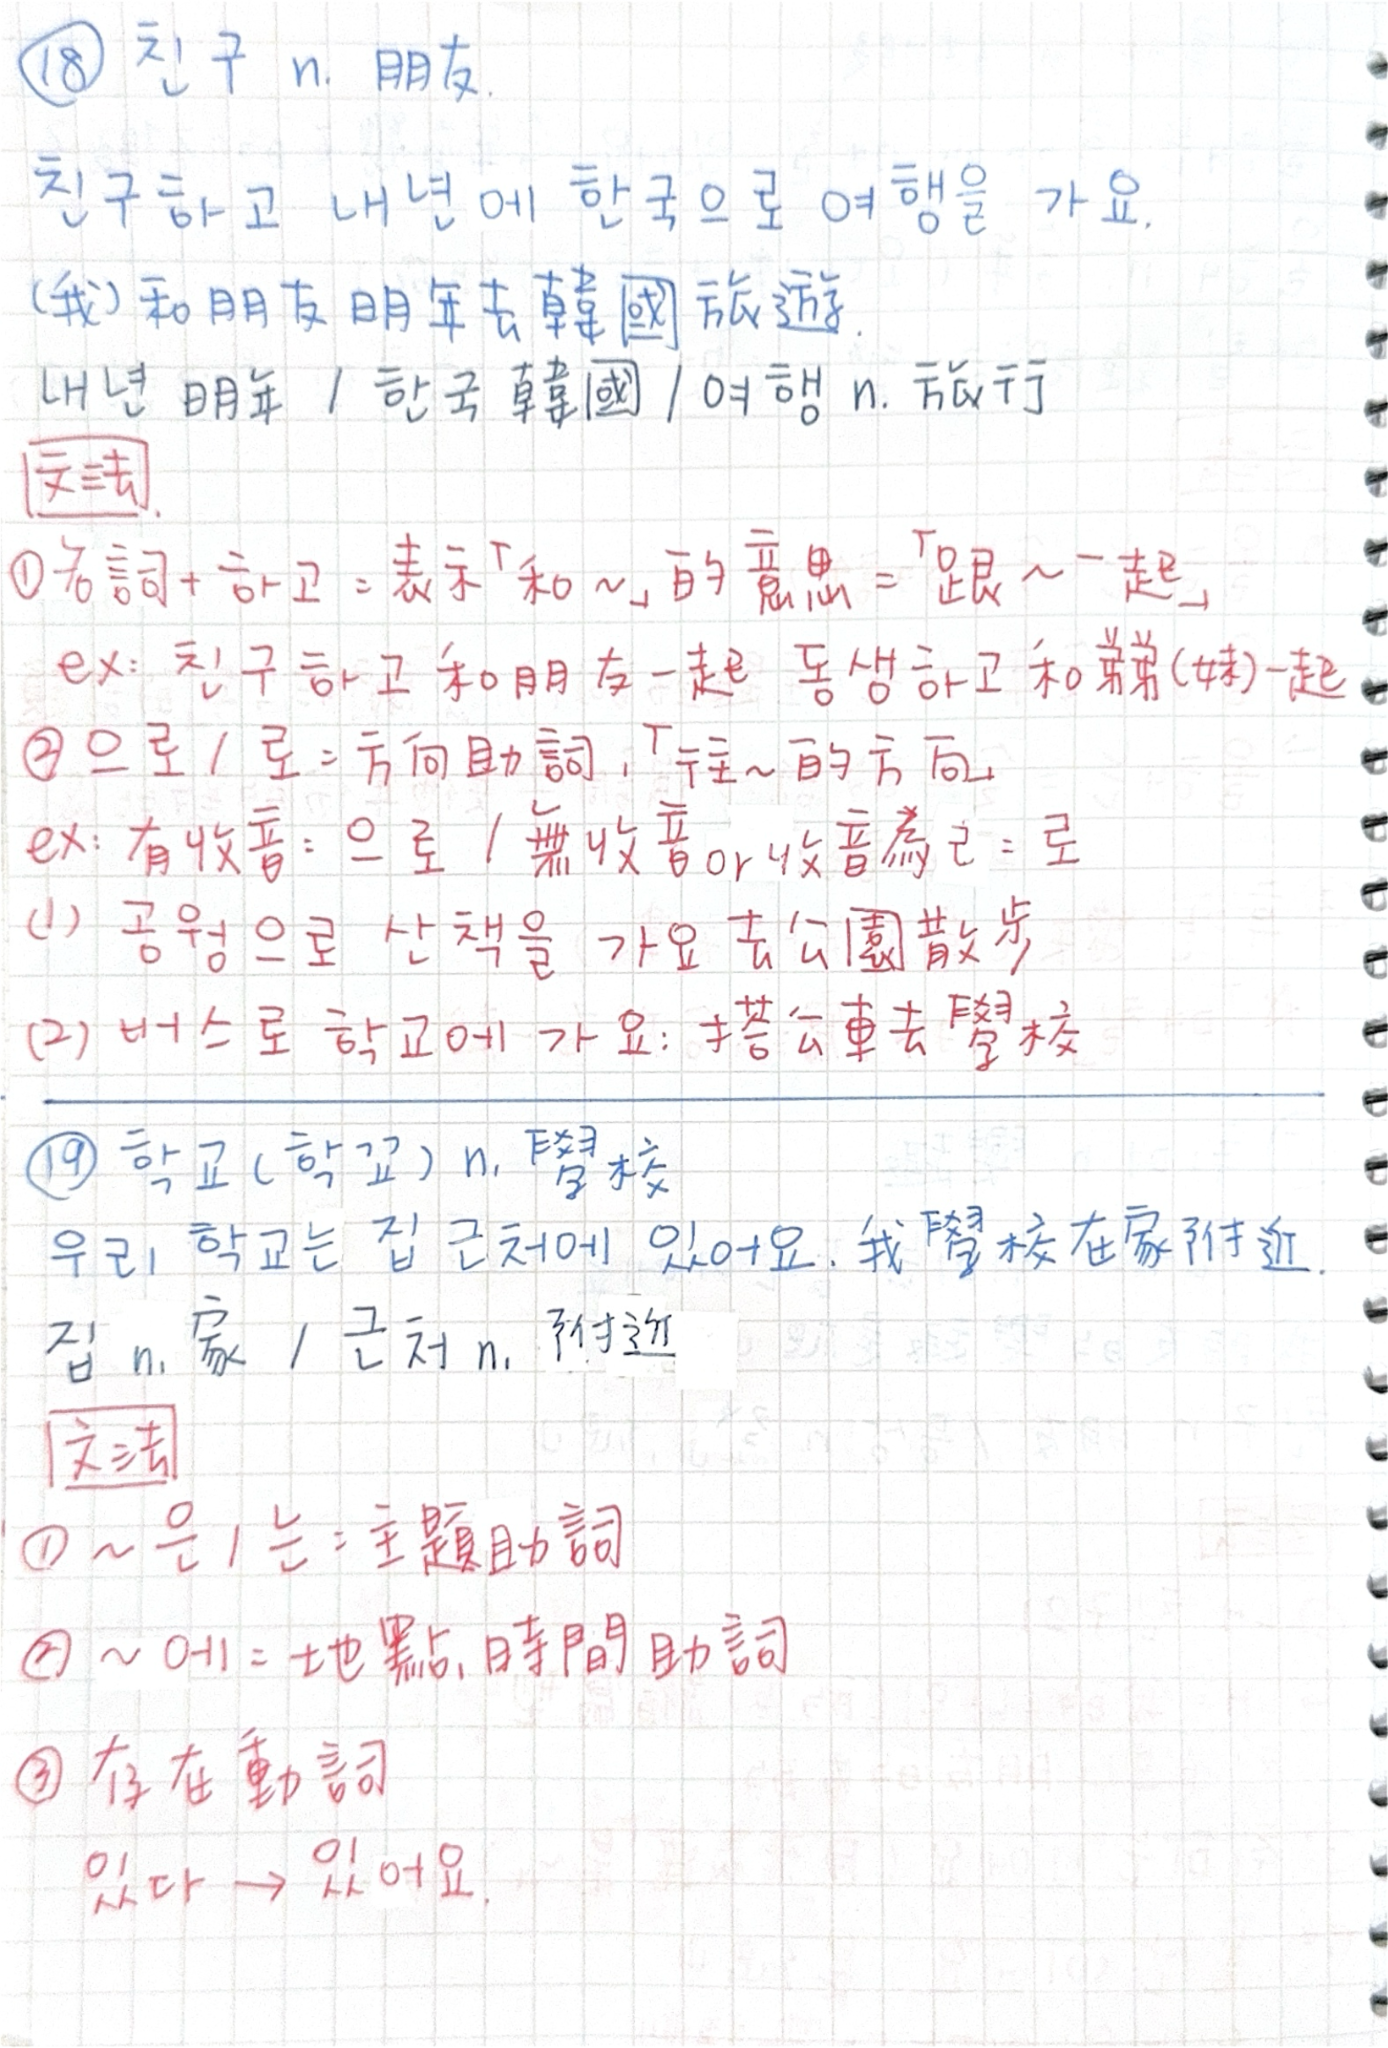 ⑱ 친구 n. 朋友.
친구하고 내년에 한국으로 여행을 가요.
(我)和朋友明年去韓國旅遊.
내년 明年 / 한국 韓國 / 여행 n. 旅行
文法.
① 名詞+하고 = 表示「和~」的意思 = 「跟~一起」
ex: 친구하고 和朋友一起 동생하고 和弟弟(妹)一起
② 으로 / 로 = 方向助詞,「往~的方向」
ex: 有收音: 으로 / 無收音or收音為ㄹ = 로
(1) 공원으로 산책을 가요 去公園散步
(2) 버스로 학교에 가요: 搭公車去學校
⑲ 학교(학꾜) n. 學校
우리 학교는 집 근처에 있어요. 我學校在家附近.
집 n. 家 / 근처 n. 附近
文法
① ~은 / 는 = 主題助詞
② ~에 = 地點, 時間助詞
③ 存在動詞
있다 → 있어요.